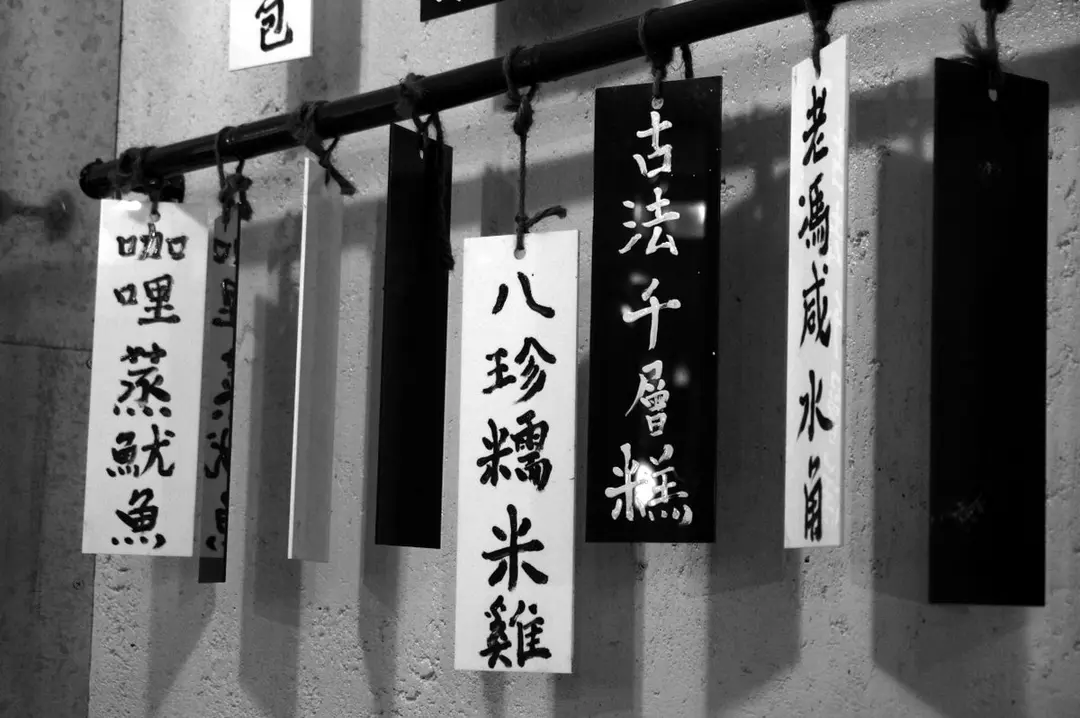 包
咖哩蒸魷魚
八珍糯米雞
古法千層糕
老馮咸水角